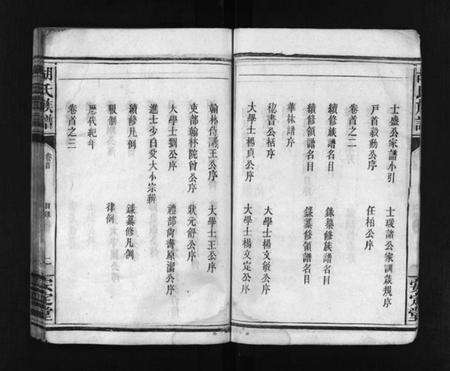 士盛公家譜小引
士瑗諸公家訓箴規序
戶首毅勳公序
任柏公序
卷首之二
續修族譜名目
錄纂修族譜名目
續修領譜名目
錄纂修領譜名目
華林譜序
秘書公牯序
大學士楊文敏公序
大學士楊貞公序
大學士楊文定公序
翰林侍講王公序
大學士王公序
吏部翰林院曾公序
狀元舒公序
大學士劉公序
禮部尚書原溜公序
進士少白愛大小宗辯
續修凡例
錄纂修凡例
服制
律例
歷代紀年
卷首之三
胡氏族譜
卷首
安定堂